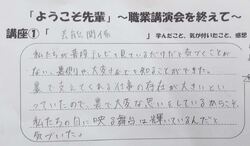 「ようこそ先輩」～職業講演会を終えて～
講座① 「芸能関係」 学んだこと、気が付いたこと、感想
私たちが普段テレビで見ているだけだと気づくことが
ない、裏側や大変さなどを知ることができた。
裏で支えてくれる仕事の存在が大きいとい
っていたので、裏で大変な思いをしているからこそ、
私たちの目に映る舞台は輝いているんだと
気づいた。